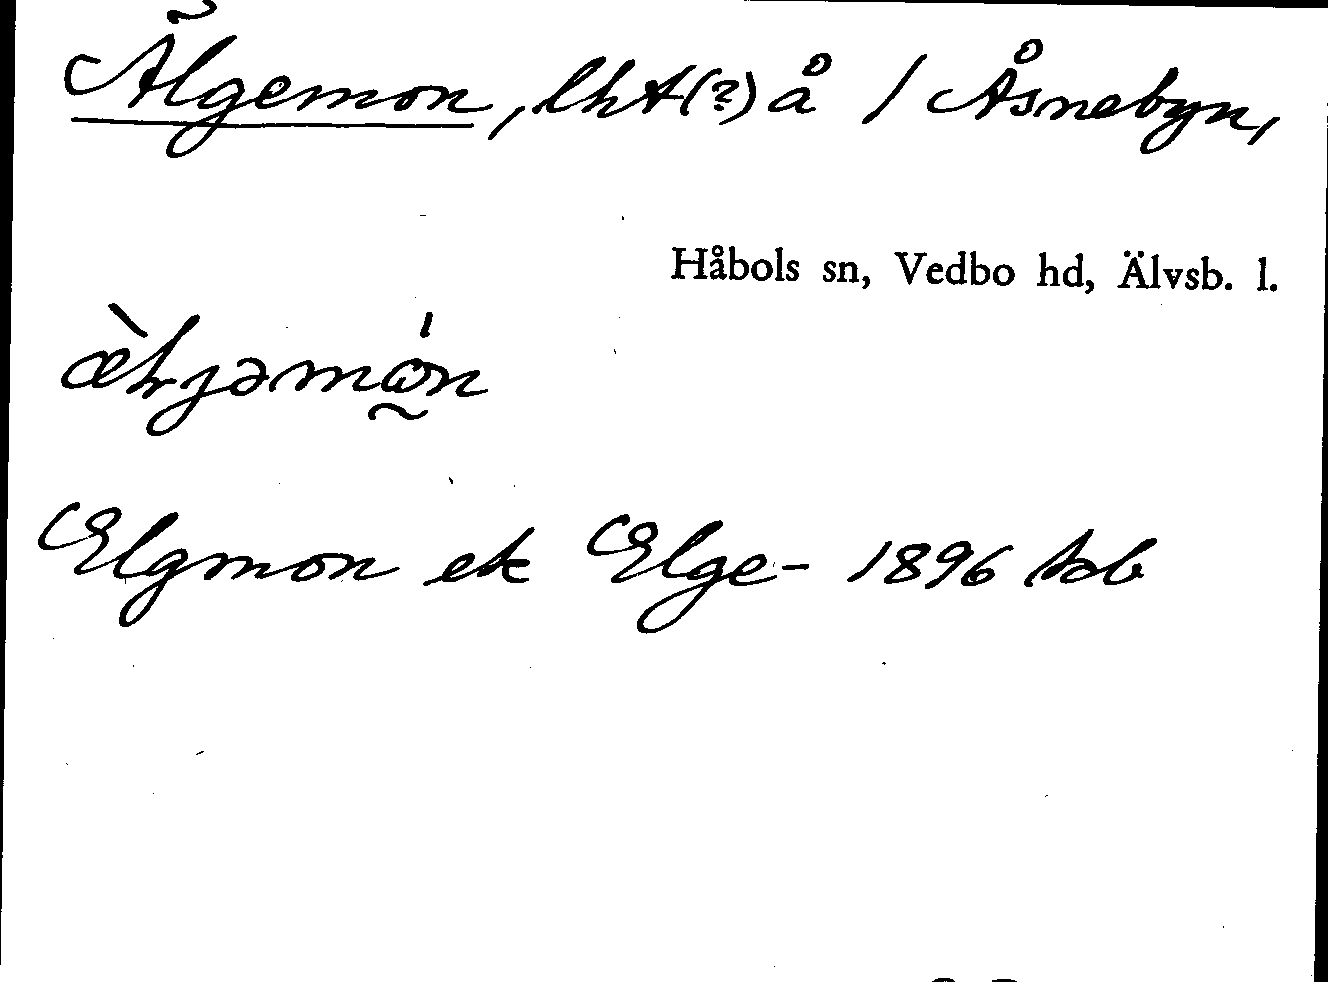 Älgemon, lht(?) å / Åsnebyn,
Håbols sn, Vedbo hd, Älvsb. l.
Elgmon ek Elge- 1896